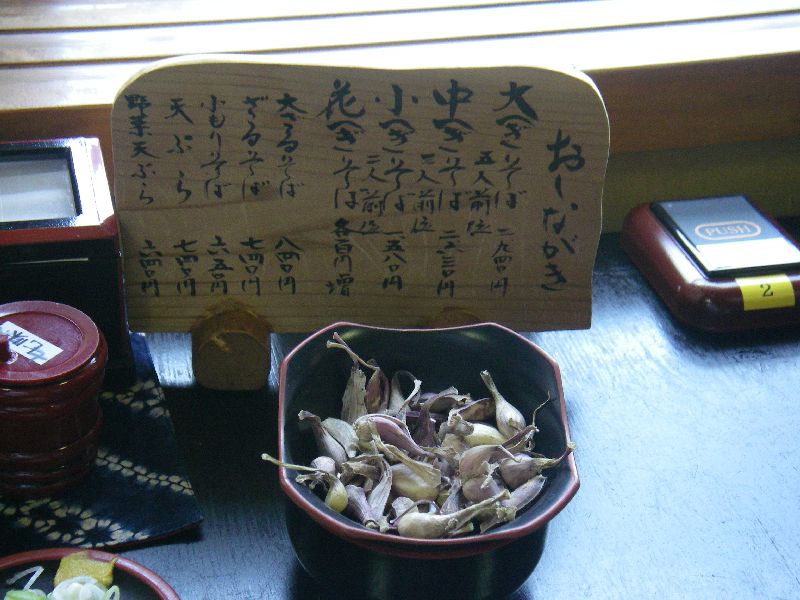 おしながき
大へぎそば 二九四〇円
五人前位
中へぎそば 二六三〇円
三人前位
小へぎそば 一五八〇円
二人前位
花へぎそば 各百円増
大ざるそば 八四〇円
ざるそば 七四〇円
小もりそば 六五〇円
天ぷら 七四〇円
野菜天ぷら 六四〇円
七味
PUSH
2